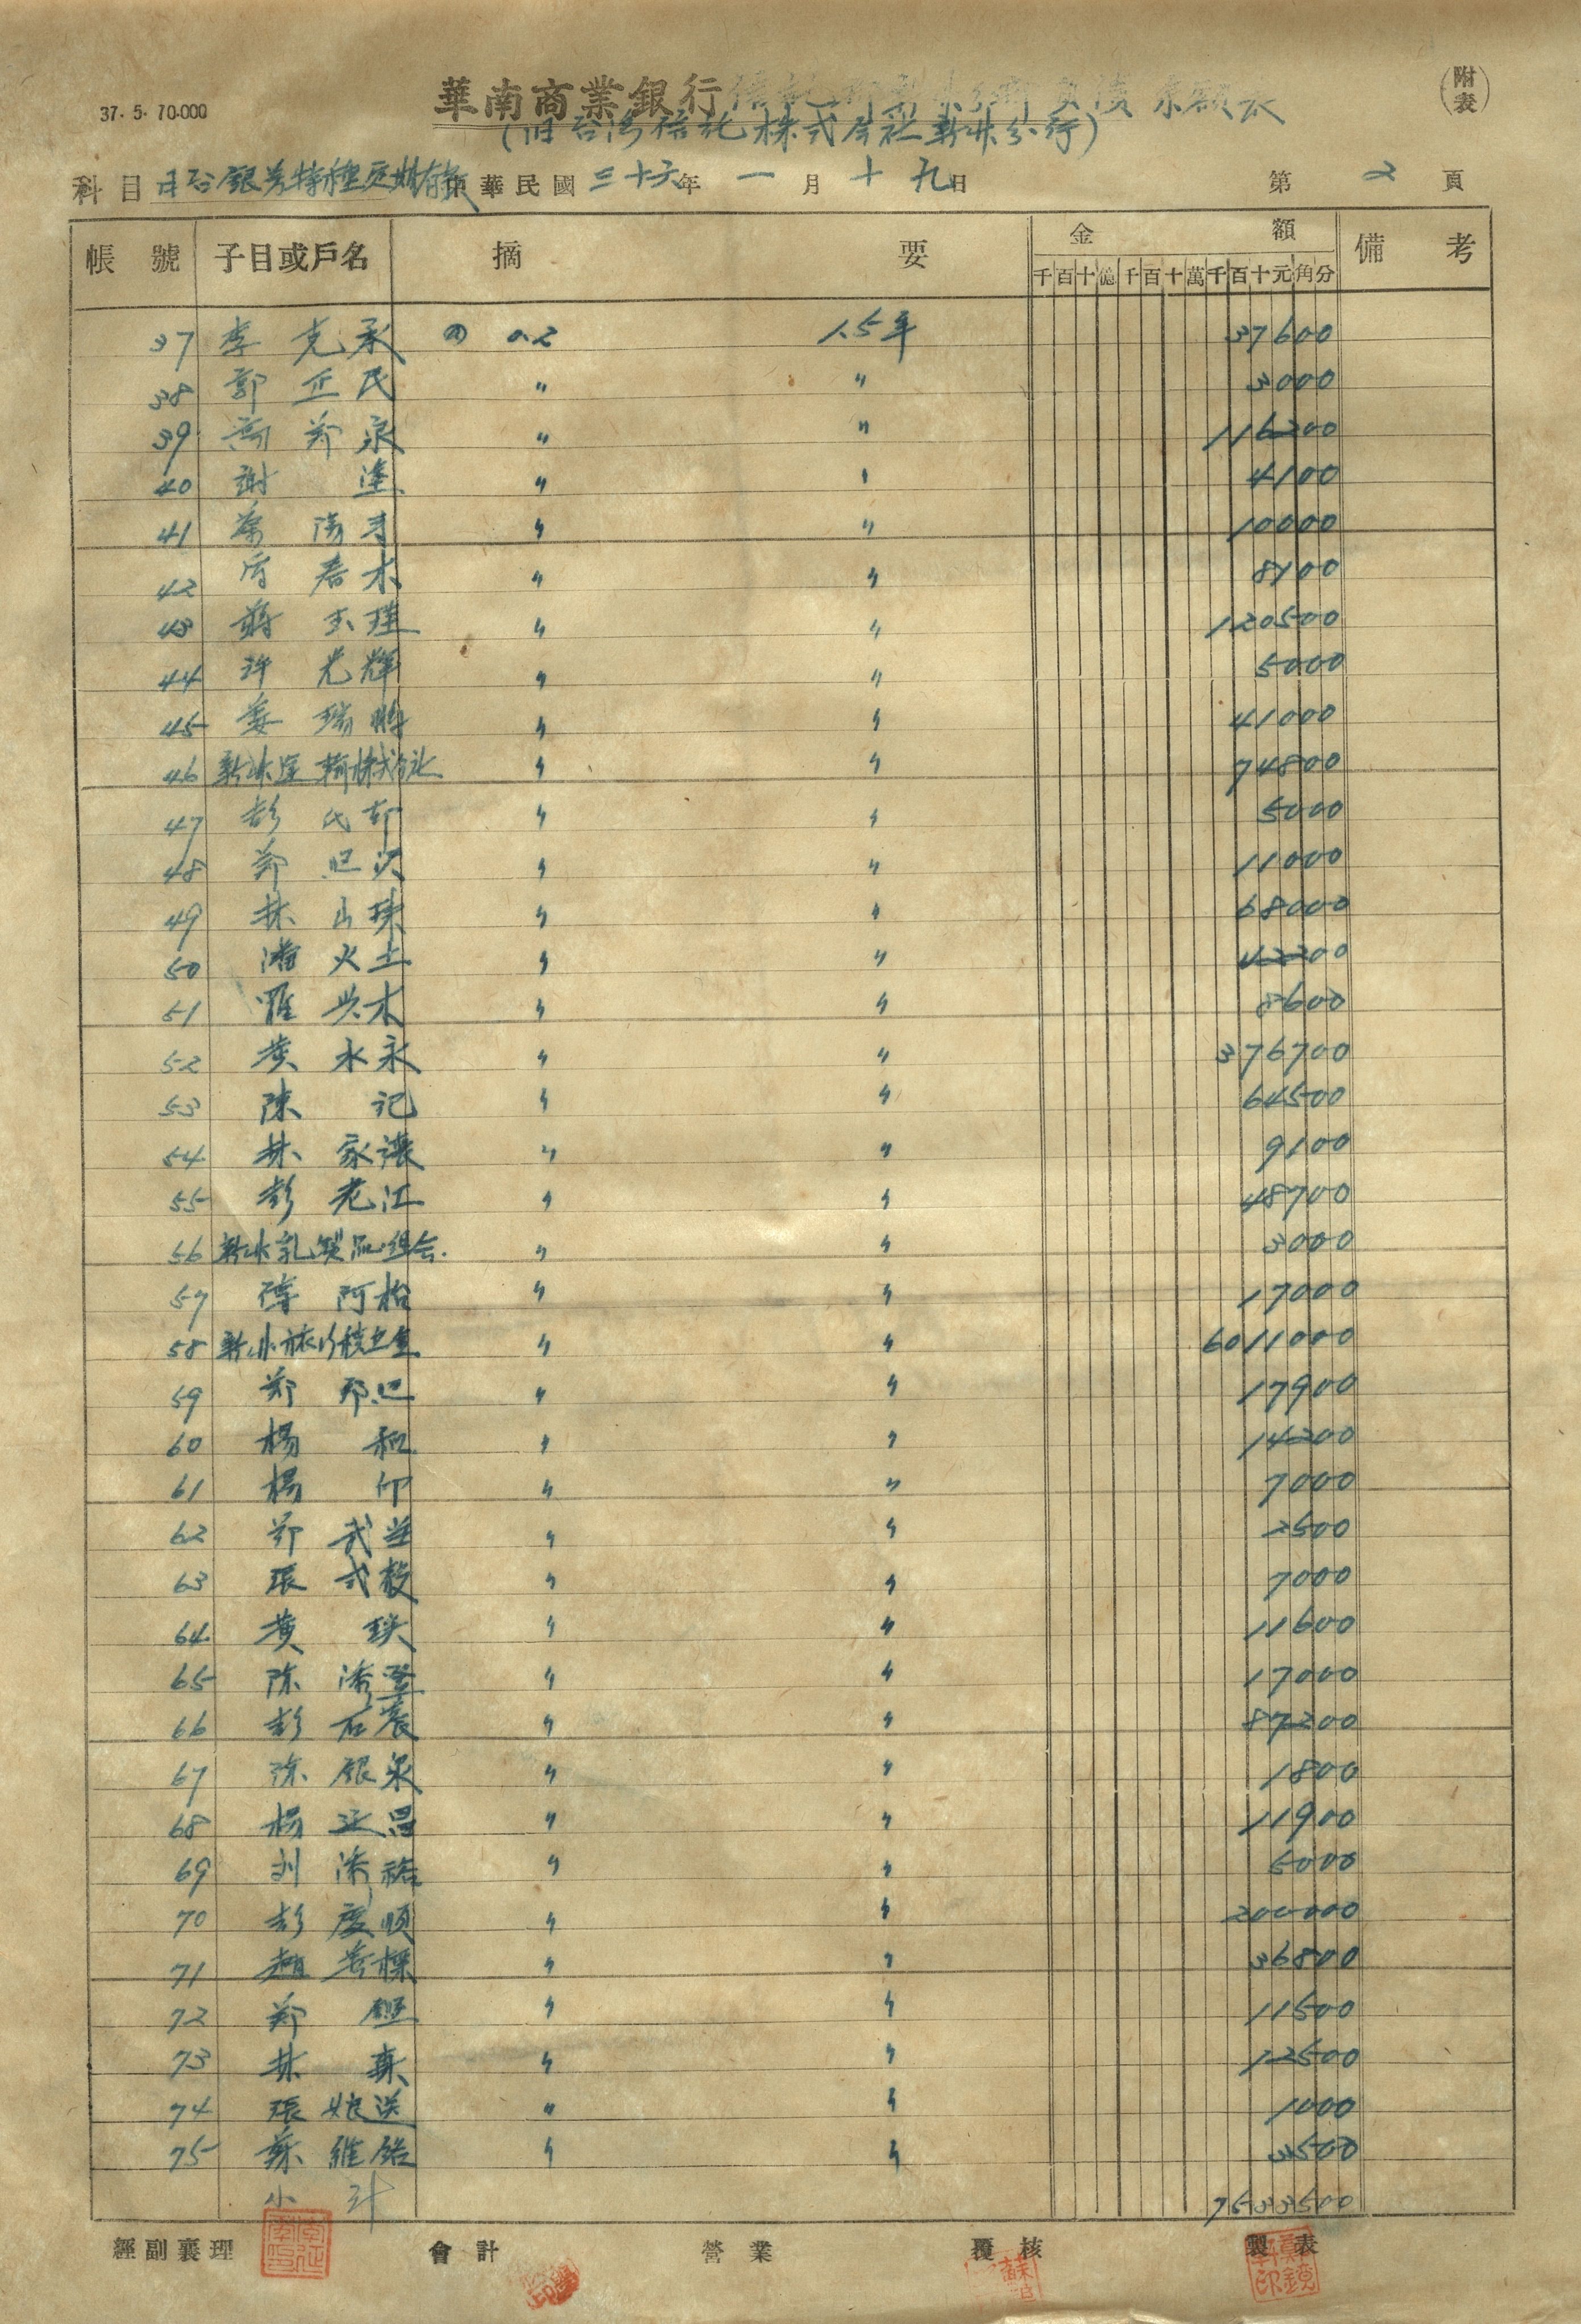 37. 5. 70.000
華南商業銀行信託部新竹分部負債余額表
(附表)
(旧台湾信託株式会社新竹分行)
科目 日台銀券特種定期存款 中華民國三十六年一月十九日 第2頁
帳號 子目或戶名 摘要 金額 備考
千百十億千百十萬千百十元角分
37 李克承 の 0.2 1.5年 37600
38 郭正民 〃 〃 3000
39 高鄭泉 〃 〃 116200
40 謝 〃 〃 4100
41 〃 〃 10000
42 春木 〃 〃 8100
43 蔣 〃 〃 120500
44 許光輝 〃 〃 5000
45 姜瑞鵬 〃 〃 41000
46 新竹運輸株式会社 〃 〃 74800
47 彭 〃 〃 5000
48 鄭 〃 〃 11000
49 林山珠 〃 〃 68000
50 潘火土 〃 〃 42200
51 羅興木 〃 〃 8600
52 黃水永 〃 〃 376700
53 陳記 〃 〃 64500
54 林家讓 〃 〃 9100
55 彭老江 〃 〃 48700
56 新竹乳製品組合 〃 〃 3000
57 阿 〃 〃 17000
58 新竹 〃 〃 6011000
59 鄭 〃 〃 17900
60 楊和 〃 〃 14200
61 楊仰 〃 〃 7000
62 鄭武 〃 〃 2500
63 張式毅 〃 〃 7000
64 黃瑛 〃 〃 11600
65 陳添登 〃 〃 17000
66 彭石 〃 〃 87200
67 銀泉 〃 〃 1800
68 楊延昌 〃 〃 11900
69 刘添 〃 〃 5000
70 彭慶順 〃 〃 200000
71 趙 〃 〃 36800
72 鄭 〃 〃 11500
73 林森 〃 〃 12500
74 張娘送 〃 〃 1000
75 蘇維銘 〃 〃 3500
小計 7533500
經副襄理 會計 營業 覆核 製表